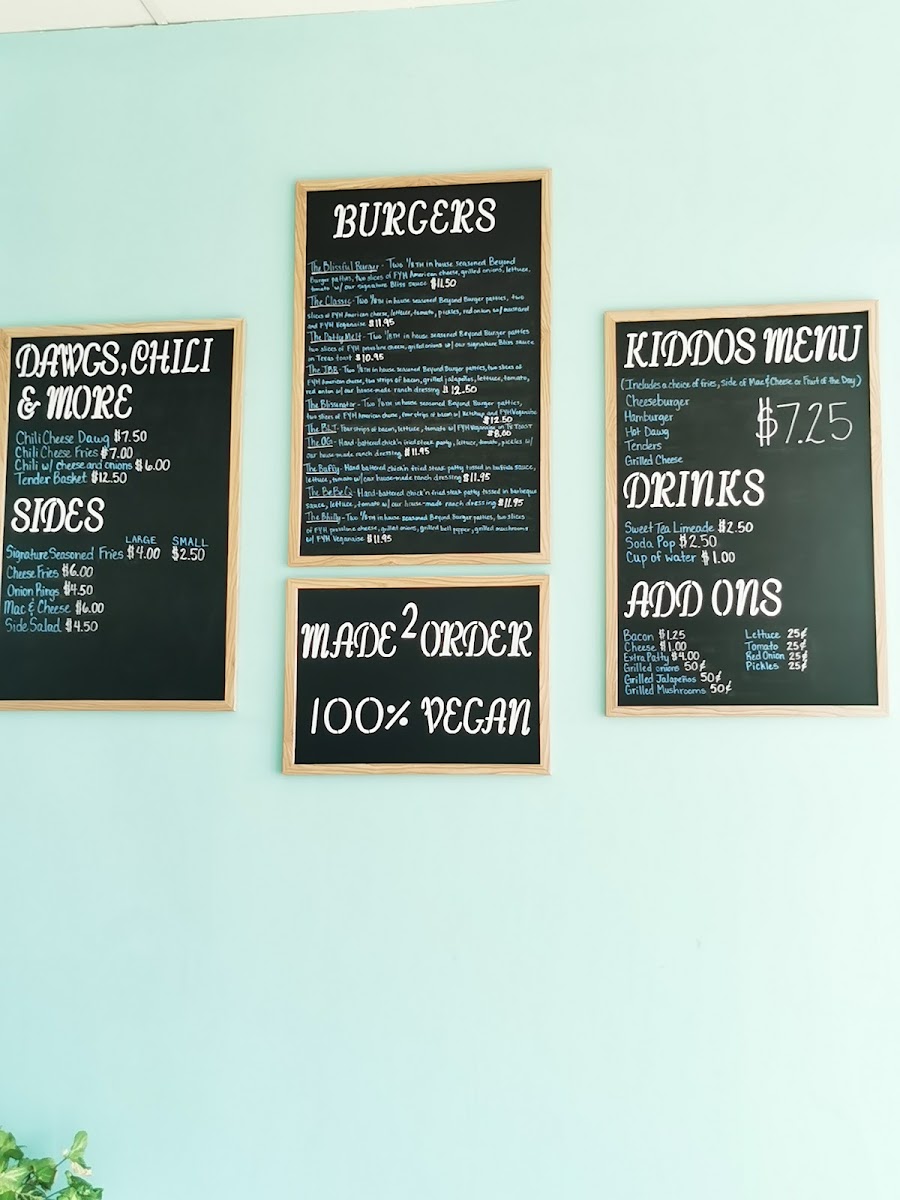 DAWGS, CHILI
& MORE
Chili Cheese Dawg $7.50
Chili Cheese Fries $7.00
Chili w/ cheese and onions $6.00
Tender Basket $12.50
SIDES
LARGE SMALL
Signature Seasoned Fries $4.00 $2.50
Cheese Fries $6.00
Onion Rings $4.50
Mac & Cheese $6.00
Side Salad $4.50
BURGERS
The Blissful Burger - Two 1/8TH in house seasoned Beyond
Burger patties, two slices of FYH American cheese, grilled onions, lettuce,
tomato w/ our signature Bliss sauce $11.50
The Classic - Two 1/8TH in house seasoned Beyond Burger patties, two
slices of FYH American cheese, lettuce, tomato, pickles, red onion w/ mustard
and FYH Veganaise $11.95
The Patty Melt - Two 1/8TH in house seasoned Beyond Burger patties
two slices of FYH provolone cheese, grilled onions w/ our signature Bliss sauce
on Texas toast $10.95
The JBB - Two 1/8TH in house seasoned Beyond Burger patties, two slices of
FYH American cheese, two strips of bacon, grilled jalapeños, lettuce, tomato,
red onion w/ our house-made ranch dressing $12.50
The Blissenator - Two 1/8TH in house seasoned Beyond Burger patties,
two slices of FYH American cheese, four strips of bacon w/ Ketchup and FYH Veganaise
$12.50
The BLT - Four strips of bacon, lettuce, tomato w/ FYH Veganaise on TX TOAST
$8.00
The OG - Hand-battered chick'n fried steak patty, lettuce, tomato, pickles w/
our house-made ranch dressing $11.95
The Buffy - Hand battered chick'n fried steak patty tossed in buffalo sauce,
lettuce, tomato w/ our house-made ranch dressing $11.95
The BeBeQ - Hand-battered chick'n fried steak patty tossed in barbeque
sauce, lettuce, tomato w/ our house-made ranch dressing $11.95
The Bhilly - Two 1/8TH in house seasoned Beyond Burger patties, two slices
of FYH provolone cheese, grilled onions, grilled bell pepper, grilled mushrooms
w/ FYH Veganaise $11.95
MADE 2 ORDER
100% VEGAN
KIDDOS MENU
(Includes a choice of fries, side of Mac & Cheese or Fruit of the Day)
Cheeseburger
Hamburger
Hot Dawg
Tenders
Grilled Cheese
$7.25
DRINKS
Sweet Tea Limeade $2.50
Soda Pop $2.50
Cup of Water $1.00
ADD ONS
Bacon $1.25
Cheese $1.00
Extra Patty $4.00
Grilled onions 50¢
Grilled Jalapeños 50¢
Grilled Mushrooms 50¢
Lettuce 25¢
Tomato 25¢
Red Onion 25¢
Pickles 25¢